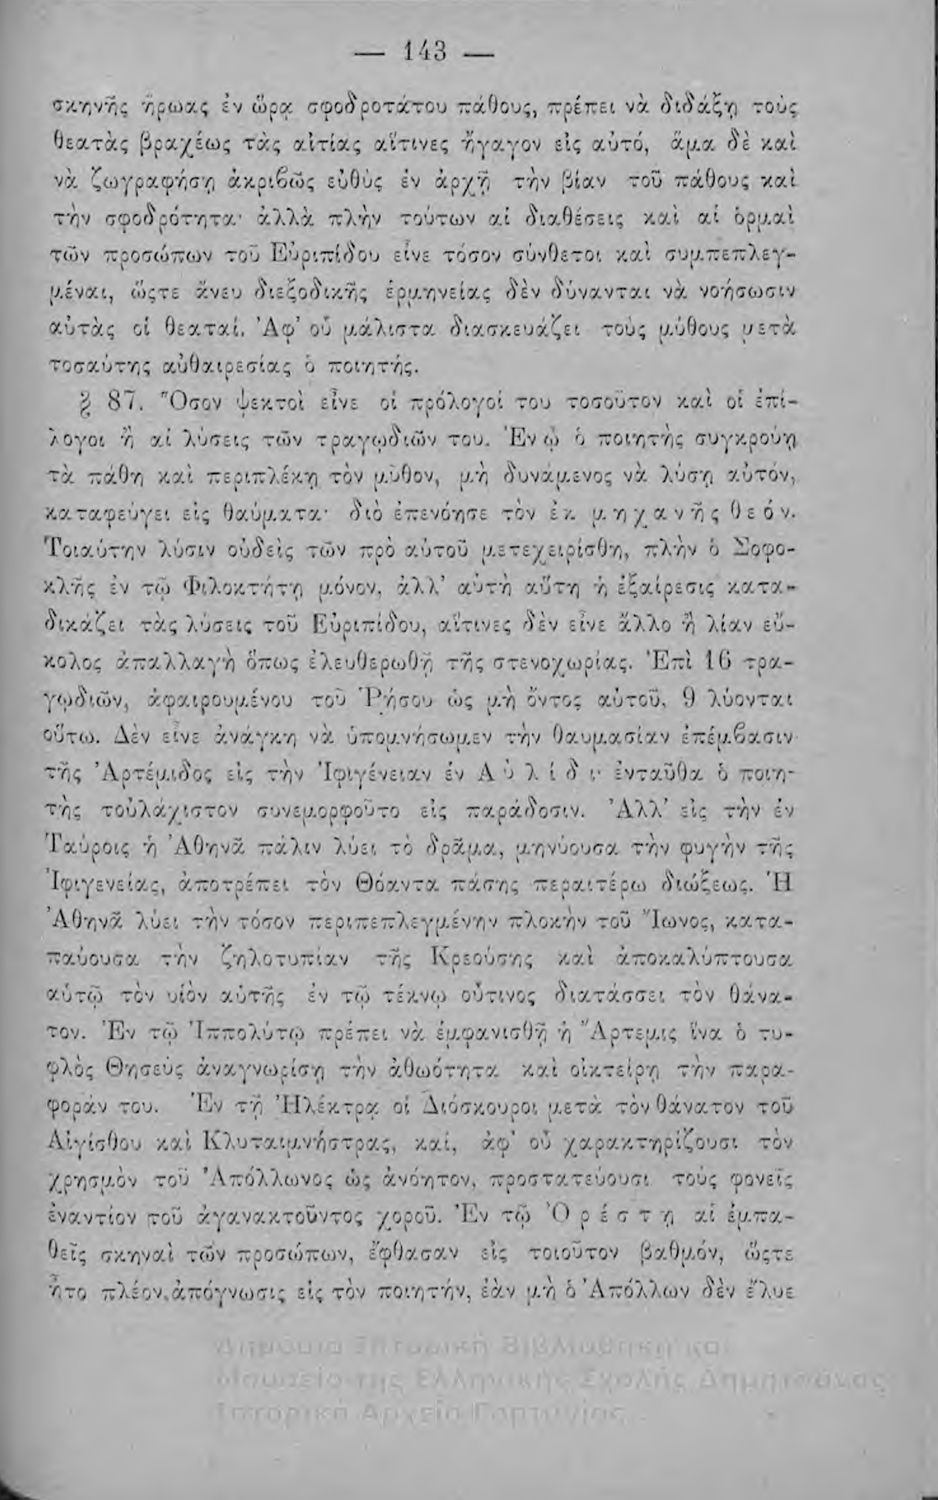 — 143 —
σκηνῆς ἥρωας ἐν ὥρᾳ σφοδροτάτου πάθους, πρέπει νὰ διδάξῃ τοὺς
θεατὰς βραχέως τὰς αἰτίας αἵτινες ἤγαγον εἰς αὐτό, ἅμα δὲ καὶ
νὰ ζωγραφήσῃ ἀκριβῶς εὐθὺς ἐν ἀρχῇ τὴν βίαν τοῦ πάθους καὶ
τὴν σφοδρότητα· ἀλλὰ πλὴν τούτων αἱ διαθέσεις καὶ αἱ ὁρμαὶ
τῶν προσώπων τοῦ Εὐριπίδου εἶνε τόσον σύνθετοι καὶ συμπεπλεγ-
μέναι, ὥςτε ἄνευ διεξοδικῆς ἑρμηνείας δὲν δύνανται νὰ νοήσωσιν
αὐτὰς οἱ θεαταί. Ἀφ' οὗ μάλιστα διασκευάζει τοὺς μύθους μετὰ
τοσαύτης αὐθαιρεσίας ὁ ποιητής.
§ 87. Ὅσον ψεκτοὶ εἶνε οἱ πρόλογοί του τοσοῦτον καὶ οἱ ἐπί-
λογοι ἢ αἱ λύσεις τῶν τραγῳδιῶν του. Ἐν ᾧ ὁ ποιητὴς συγκρούῃ
τὰ πάθη καὶ περιπλέκῃ τὸν μῦθον, μὴ δυνάμενος νὰ λύσῃ αὐτόν,
καταφεύγει εἰς θαύματα· διὸ ἐπενόησε τὸν ἐκ μηχανῆς θεόν.
Τοιαύτην λύσιν οὐδεὶς τῶν πρὸ αὐτοῦ μετεχειρίσθη, πλὴν ὁ Σοφο-
κλῆς ἐν τῷ Φιλοκτήτῃ μόνον, ἀλλ' αὐτὴ αὕτη ἡ ἐξαίρεσις κατα-
δικάζει τὰς λύσεις τοῦ Εὐριπίδου, αἵτινες δὲν εἶνε ἄλλο ἢ λίαν εὔ-
κολος ἀπαλλαγὴ ὅπως ἐλευθερωθῇ τῆς στενοχωρίας. Ἐπὶ 16 τρα-
γῳδιῶν, ἀφαιρουμένου τοῦ Ῥήσου ὡς μὴ ὄντος αὐτοῦ, 9 λύονται
οὕτω. Δὲν εἶνε ἀνάγκη νὰ ὑπομνήσωμεν τὴν θαυμασίαν ἐπέμβασιν
τῆς Ἀρτέμιδος εἰς τὴν Ἰφιγένειαν ἐν Αὐλίδι· ἐνταῦθα ὁ ποιη-
τὴς τοὐλάχιστον συνεμορφοῦτο εἰς παράδοσιν. Ἀλλ' εἰς τὴν ἐν
Ταύροις ἡ Ἀθηνᾶ πάλιν λύει τὸ δρᾶμα, μηνύουσα τὴν φυγὴν τῆς
Ἰφιγενείας, ἀποτρέπει τὸν Θόαντα πάσης περαιτέρω διώξεως. Ἡ
Ἀθηνᾶ λύει τὴν τόσον περιπεπλεγμένην πλοκὴν τοῦ Ἴωνος, κατα-
παύουσα τὴν ζηλοτυπίαν τῆς Κρεούσης καὶ ἀποκαλύπτουσα
αὐτῷ τὸν υἱὸν αὐτῆς ἐν τῷ τέκνῳ οὗτινος διατάσσει τὸν θάνα-
τον. Ἐν τῷ Ἱππολύτῳ πρέπει νὰ ἐμφανισθῇ ἡ Ἄρτεμις ἵνα ὁ τυ-
φλὸς Θησεὺς ἀναγνωρίσῃ τὴν ἀθωότητα καὶ οἰκτείρῃ τὴν παρα-
φοράν του. Ἐν τῇ Ἠλέκτρᾳ οἱ Διόσκουροι μετὰ τὸν θάνατον τοῦ
Αἰγίσθου καὶ Κλυταιμνήστρας, καί, ἀφ' οὗ χαρακτηρίζουσι τὸν
χρησμὸν τοῦ Ἀπόλλωνος ὡς ἀνόητον, προστατεύουσι τοὺς φονεῖς
ἐναντίον τοῦ ἀγανακτοῦντος χοροῦ. Ἐν τῷ Ὀρέστῃ αἱ ἐμπα-
θεῖς σκηναὶ τῶν προσώπων, ἔφθασαν εἰς τοιοῦτον βαθμόν, ὥςτε
ἦτο πλέον ἀπόγνωσις εἰς τὸν ποιητήν, ἐὰν μὴ ὁ Ἀπόλλων δὲν ἔλυε
Δημόσια Ιστορική Βιβλιοθήκη και
Μουσείο της Ελληνικής Σχολής Δημητσάνας
Ιστορικό Αρχείο Γορτυνίας